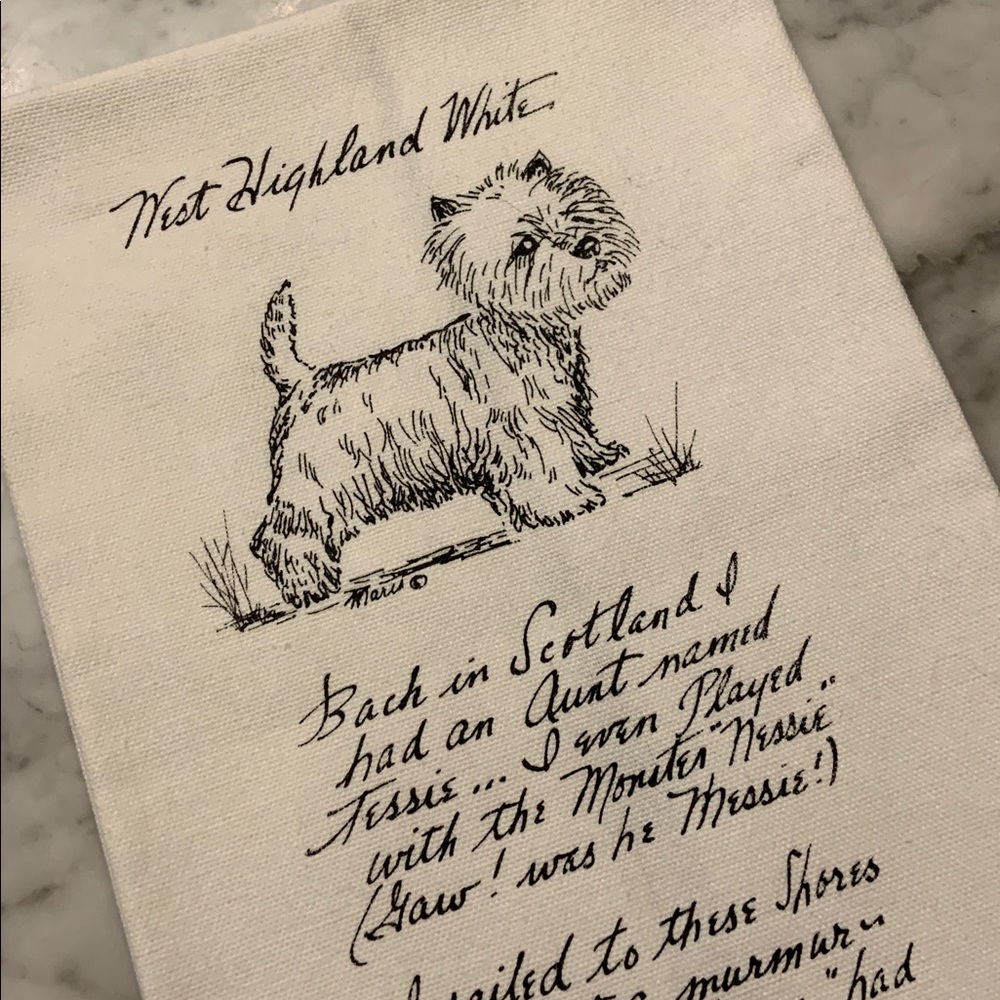 West Highland White
Maris ©
Back in Scotland I
had an Aunt named
Tessie... I even Played
with the Monster "Nessie"
(Gaw! was he Messie!)
I sailed to these Shores
a murmur~
" had